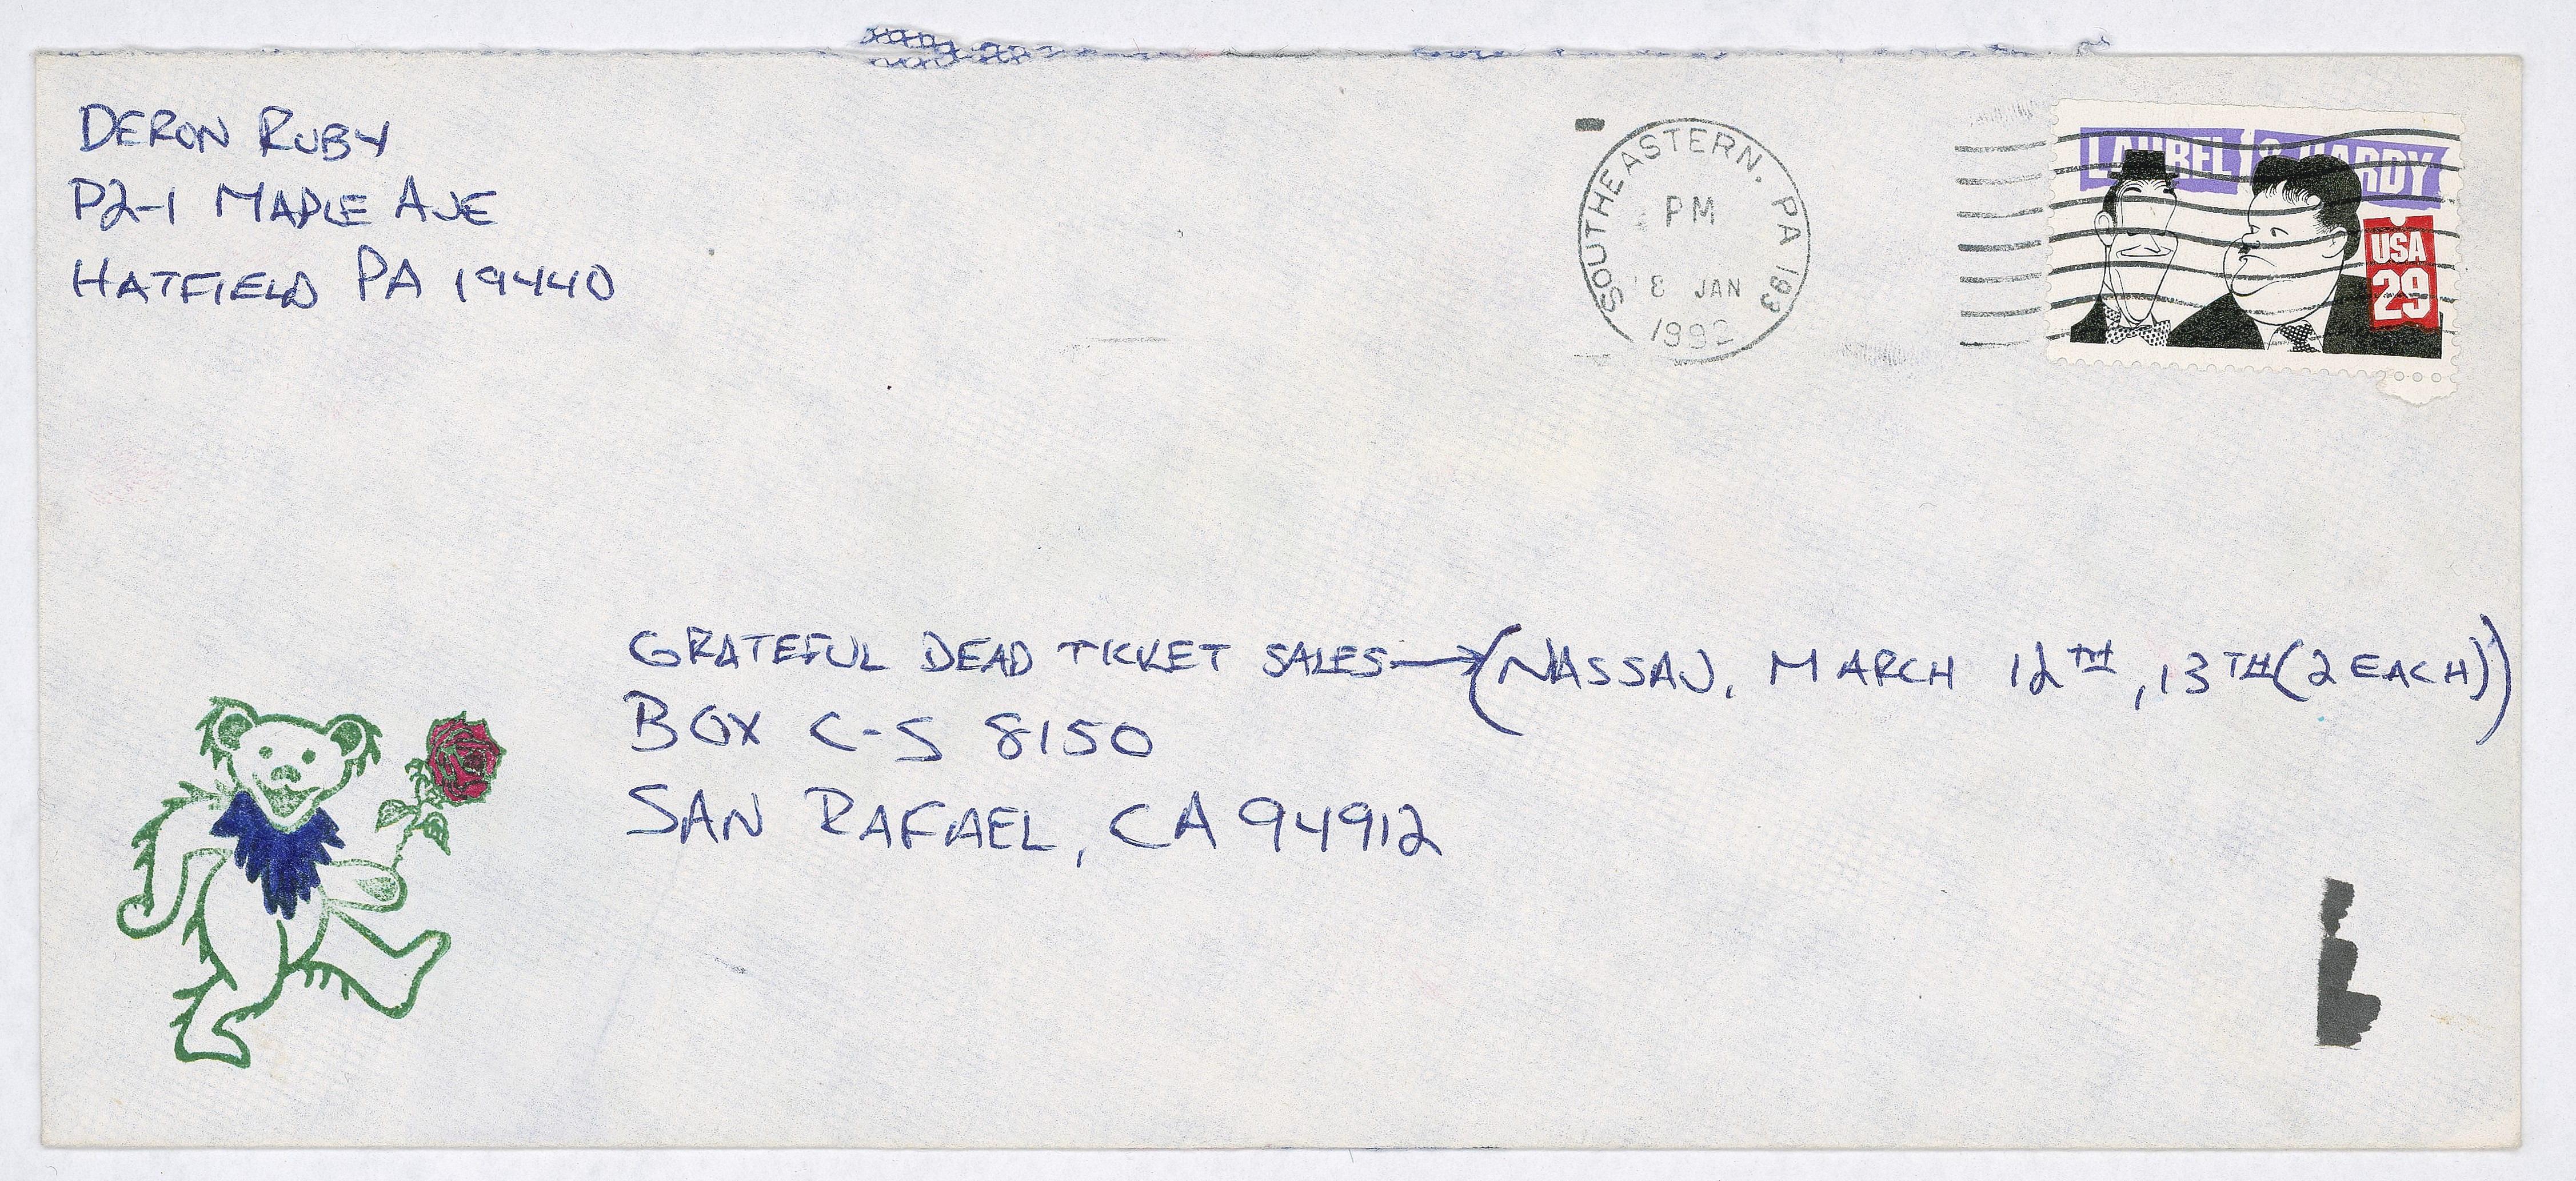 DERON RUBY
P2-1 MAPLE AVE
HATFIELD PA 19440
SOUTHEASTERN, PA 193
PM
8 JAN
1992
LAUREL & HARDY
USA
29
GRATEFUL DEAD TICKET SALES→(NASSAU, MARCH 12TH, 13TH(2 EACH))
BOX C-S 8150
SAN RAFAEL, CA 94912